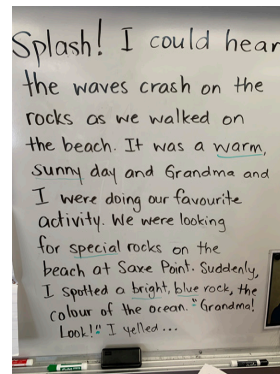 Splash! I could hear
the waves crash on the
rocks as we walked on
the beach. It was a warm,
sunny day and Grandma and
I were doing our favourite
activity. We were looking
for special rocks on the
beach at Saxe Point. Suddenly,
I spotted a bright, blue rock, the
colour of the ocean. "Grandma!
Look!" I yelled...